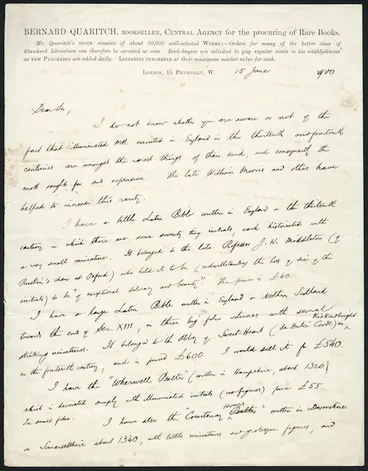 BERNARD QUARITCH, BOOKSELLER, CENTRAL AGENCY for the procuring of Rare Books.
Mr. Quaritch's STOCK consists of about 50,000 well-selected WORKS:—Orders for many of the better class of
Standard Literature can therefore be executed at once. Book-buyers are solicited to pay regular visits to his establishment
as NEW PURCHASES are added daily. LIBRARIES PURCHASED at their maximum market value for cash.
LONDON, 15 PICCADILLY, W. 15 June 1900
Dear Sir,
I do not know whether you are aware or not of the
fact that illuminated MSS. executed in England in the thirteenth and fourteenth
centuries are amongst the rarest things of their kind, and consequently the
most sought for and expensive. The late William Morris and others have
helped to increase this rarity.
I have a little Latin Bible written in England in the thirteenth
century in which there are some seventy tiny initials, each historiated with
a very small miniature. It belonged to the late Professor J. H. Middleton (of
Ruskin's chair at Oxford) who held it to be (notwithstanding the loss of six of the
initials) to be "of exceptional delicacy and beauty." The price is £40.
I have a larger Latin Bible written in England or Northern Scotland
towards the end of Sec. XIII, in three big folio volumes with several
striking miniatures. It belonged to the Abbey of Sweet-Heart (in Kirkcudbright
in the fourteenth century, and is priced £600. I would sell it for £540.
I have the "Wherwell Psalter" (written in Hampshire, about 1320)
which is decorated simply with illuminated initials (no figures) price £55.
In small folio. I have also the "Courtenay Hours & Psalter" written in Devonshire
or Somersetshire about 1340, with little miniatures and grotesque figures, and